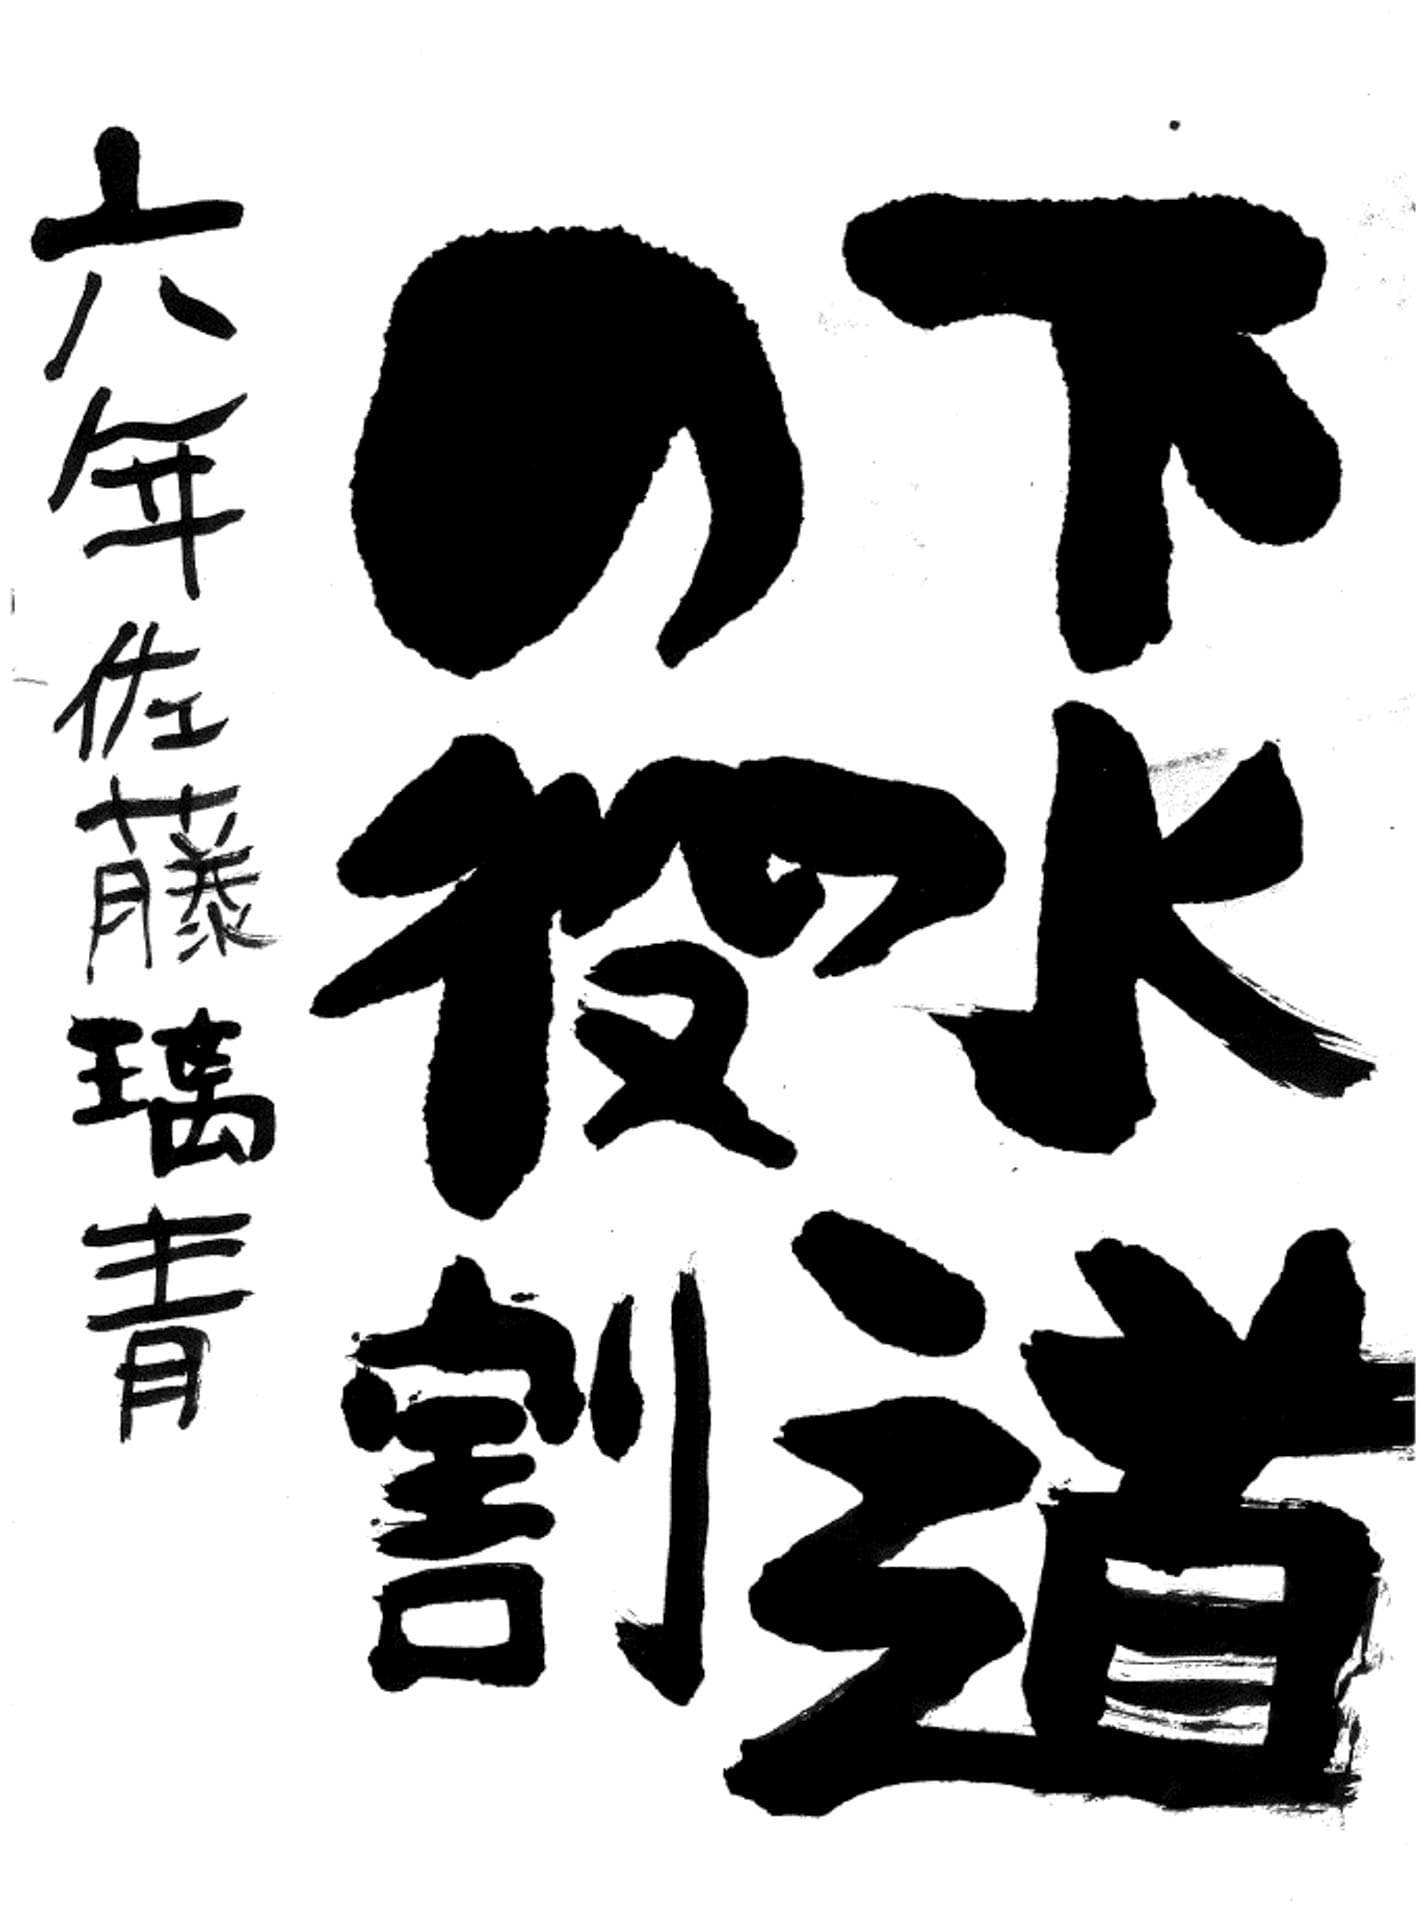 下水道
の役割
六年佐藤璃青